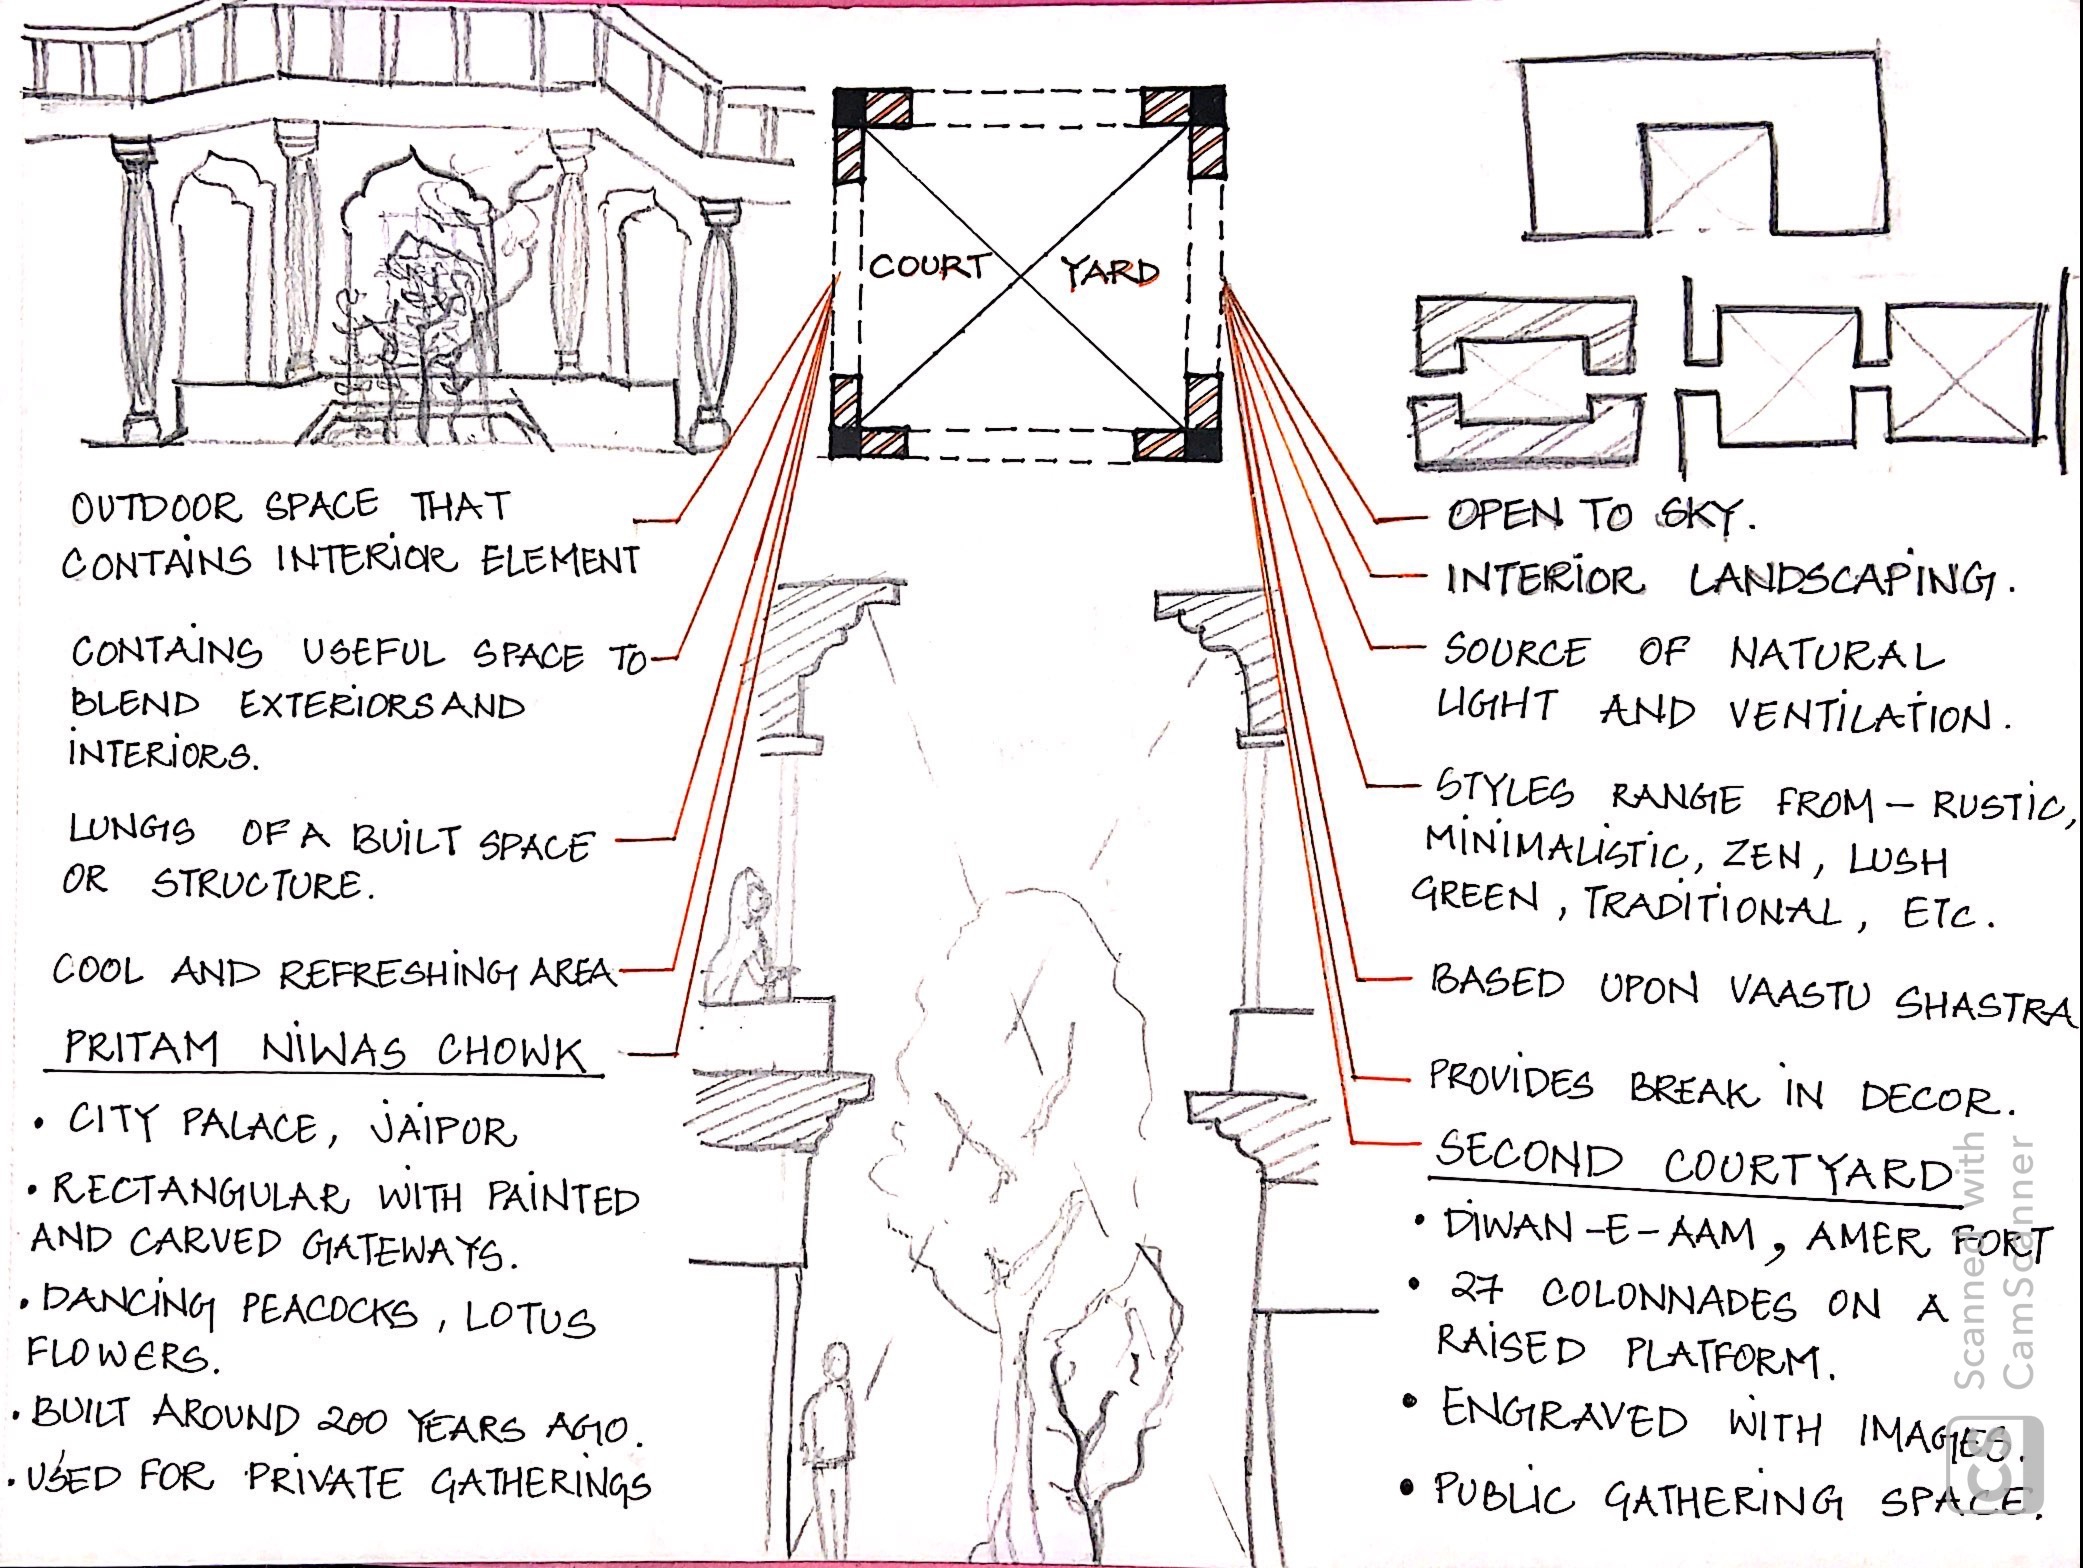 COURT YARD
OUTDOOR SPACE THAT
CONTAINS INTERIOR ELEMENT
CONTAINS USEFUL SPACE TO
BLEND EXTERIORS AND
INTERIORS.
LUNGS OF A BUILT SPACE
OR STRUCTURE.
COOL AND REFRESHING AREA
PRITAM NIWAS CHOWK
• CITY PALACE, JAIPUR
• RECTANGULAR WITH PAINTED
AND CARVED GATEWAYS.
• DANCING PEACOCKS, LOTUS
FLOWERS.
• BUILT AROUND 200 YEARS AGO.
• USED FOR PRIVATE GATHERINGS
OPEN TO SKY.
INTERIOR LANDSCAPING.
SOURCE OF NATURAL
LIGHT AND VENTILATION.
STYLES RANGE FROM - RUSTIC,
MINIMALISTIC, ZEN, LUSH
GREEN, TRADITIONAL, ETC.
BASED UPON VAASTU SHASTRA
PROVIDES BREAK IN DECOR.
SECOND COURTYARD
• DIWAN-E-AAM, AMER FORT
• 27 COLONNADES ON A
RAISED PLATFORM.
• ENGRAVED WITH IMAGES.
• PUBLIC GATHERING SPACE.
CS
Scanned with
CamScanner